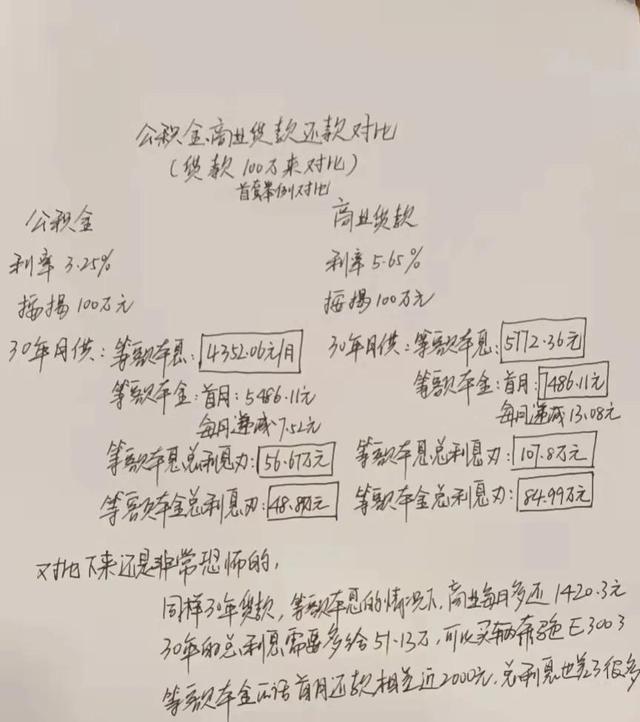 公积金商业贷款还款对比
(贷款100万来对比)
首套举例对比
公积金
利率 3.25%
按揭100万元
30年月供:等额本息:4352.06元/月
等额本金:首月:5486.11元
每月递减7.52元
等额本息总利息为:56.67万元
等额本金总利息为:48.88万元
商业贷款
利率 5.65%
按揭100万元
30年月供:等额本息:5772.36元
等额本金:首月:7486.11元
每月递减13.08元
等额本息总利息为:107.8万元
等额本金总利息为:84.99万元
对比下来还是非常恐怖的,
同样30年贷款,等额本息的情况下,商业每月多还1420.3元
30年的总利息需要多给51.13万,可以买辆奔驰E300了
等额本金的话首月还款相差近2000元,总利息也差了很多